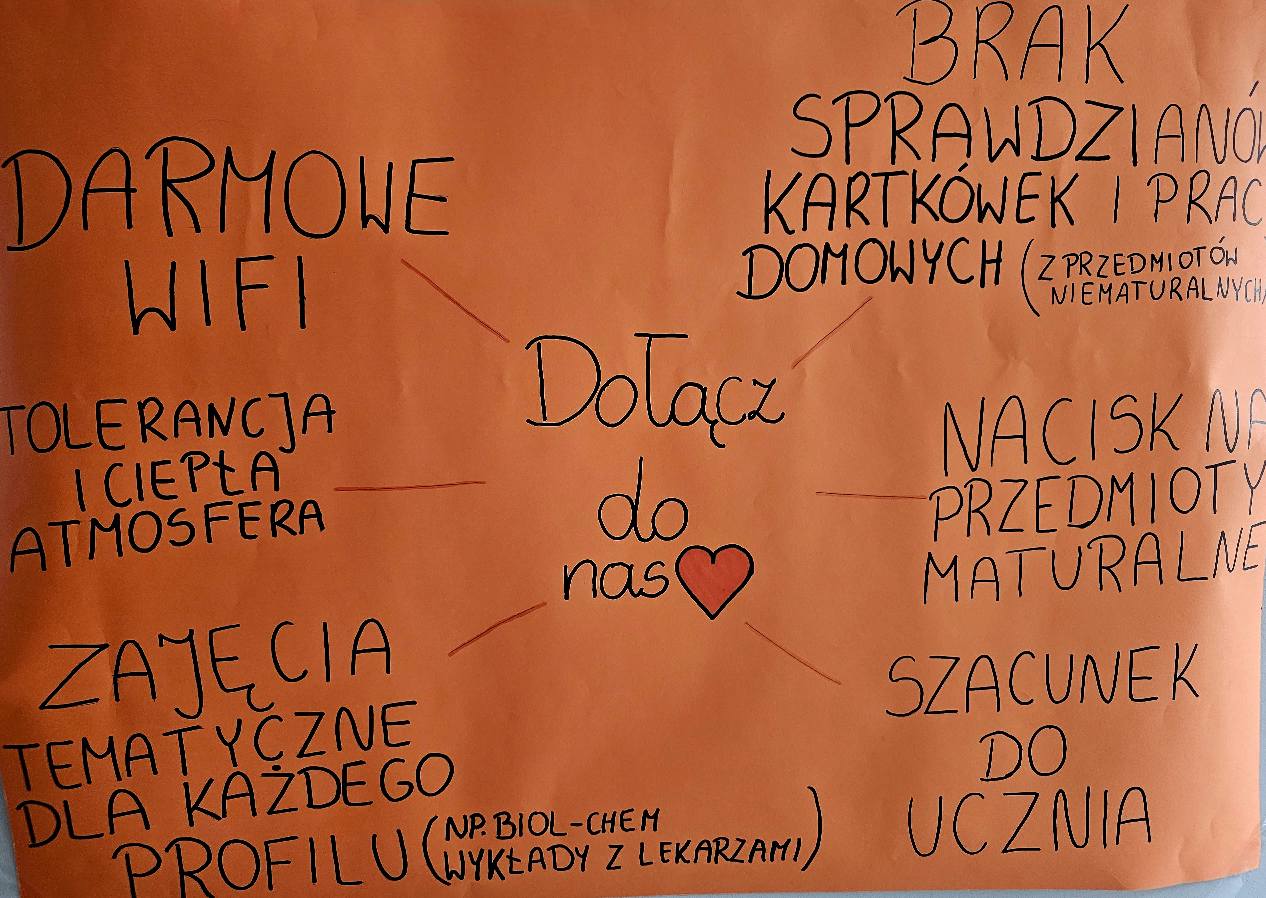 DARMOWE
WIFI
BRAK
SPRAWDZIANÓW
KARTKÓWEK I PRAC
DOMOWYCH (Z PRZEDMIOTÓW
NIEMATURALNYCH)
Dołącz
do
nas
TOLERANCJA
I CIEPŁA
ATMOSFERA
NACISK NA
PRZEDMIOTY
MATURALNE
ZAJĘCIA
TEMATYCZNE
DLA KAŻDEGO
PROFILU (NP. BIOL-CHEM
WYKŁADY Z LEKARZAMI)
SZACUNEK
DO
UCZNIA